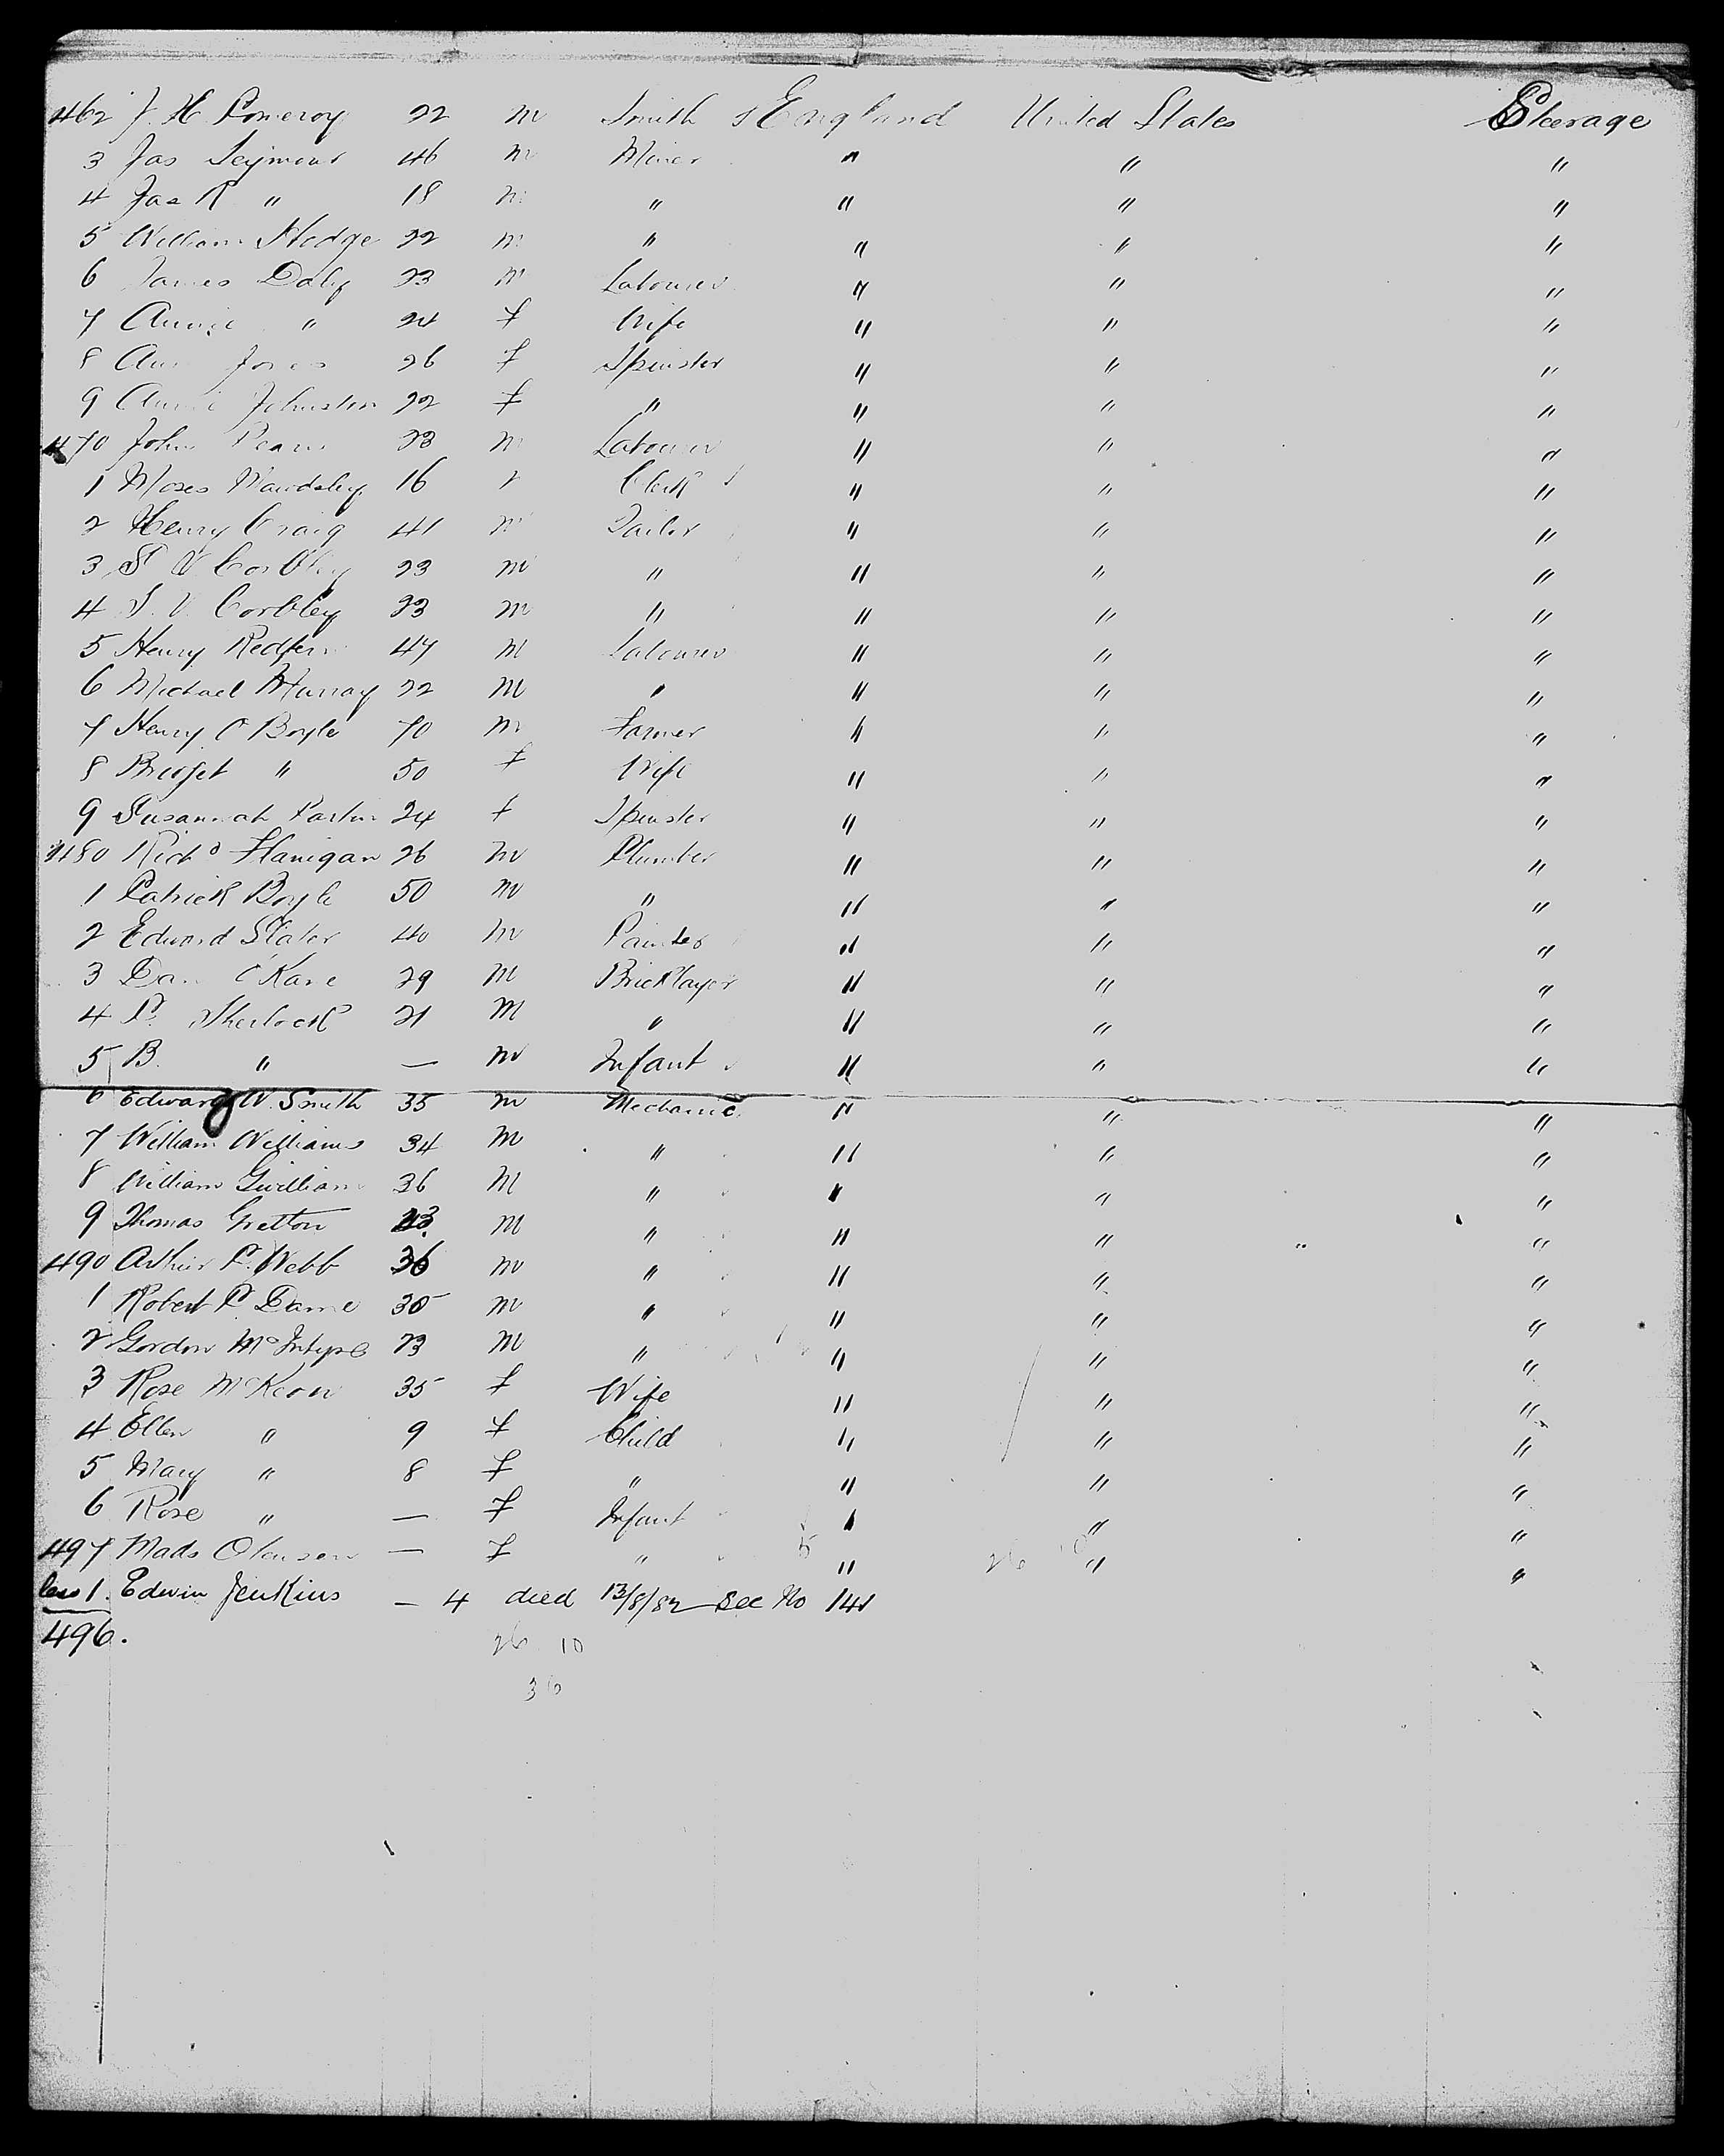 462 J. H. Pomeroy 22 m Smith England United States Steerage
3 Jas Seymour 46 m Miner " " "
4 Jas R " 18 m " " " "
5 William Hodge 22 m " " " "
6 James Daly 23 m Labourer " " "
7 Annie " 24 f Wife " " "
8 Ann Jones 26 f Spinster " " "
9 Annie Johnston 22 f " " " "
470 John 23 m Labourer " " "
1 Moses Mawdsley 16 Clerk " " "
2 Henry Craig 41 m Tailor " " "
3 S V Corbley 23 m " " " "
4 S. V. Corbley 23 m " " " "
5 Henry Redfern 47 m Labourer " " "
6 Michael Murray 22 m " " " "
7 Henry O Boyle 70 m Farmer " " "
8 Bridget " 50 f Wife " " "
9 Susannah 24 f Spinster " " "
480 Richd Flanigan 26 m Plumber " " "
1 Patrick Boyle 50 m " " " "
2 Edward Slater 40 m Painter " " "
3 Dan O'Kane 29 m Bricklayer " " "
4 P. Sherlock 21 m " " " "
5 B. " — m Infant " " "
6 Edward W. Smith 35 m Mechanic " " "
7 William Williams 34 m " " " "
8 William Gwilliam 36 m " " " "
9 Thomas Gretton 23 m " " " "
490 Arthur P. Webb 36 m " " " "
1 Robert P Dame 30 m " " " "
2 Gordon McIntyre 23 m " " " "
3 Rose McKeon 35 f Wife " " "
4 Ellen " 9 f Child " " "
5 Mary " 8 f " " " "
6 Rose " — f Infant " " "
497 Mads Olauson — f " " " "
less 1. Edwin Jenkins — 4 died 13/8/82 See No 141
496. 26 10
36